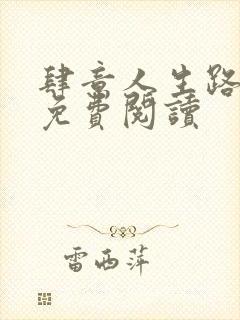 肆意人生路
免費閱讀
雷西萍